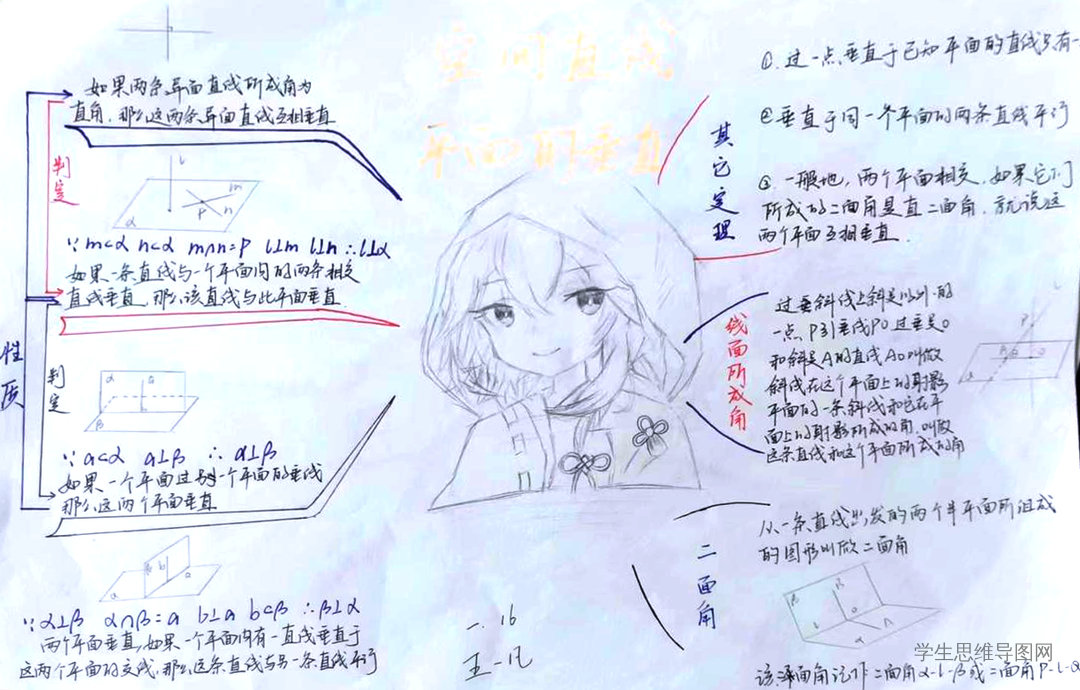 空间直线
平面的垂直
如果两条异面直线所成角为
直角,那么这两条异面直线互相垂直
判定
l
m
P
n
α
∵ m⊂α n⊂α m∩n=P l⊥m l⊥n ∴l⊥α
如果一条直线与一个平面内的两条相交
直线垂直,那么该直线与此平面垂直
性质
判定
α
a
β
∵ a⊂α a⊥β ∴ α⊥β
如果一个平面过另一个平面的垂线
那么这两个平面垂直
β
b
a
α
∵ α⊥β α∩β=a b⊥a b⊂β ∴β⊥α
两个平面垂直,如果一个平面内有一直线垂直于
这两个平面的交线,那么这条直线与另一条直线平行
一.16
王一凡
其它定理
①.过一点垂直于已知平面的直线只有一
②垂直于同一个平面的两条直线平行
③.一般地,两个平面相交,如果它们
所成的二面角是直二面角,就说这
两个平面互相垂直.
线面所成角
过垂斜线上斜足以外的
一点P引垂线PO过垂足O
和斜足A的直线AO叫做
斜线在这个平面上的射影
平面的一条斜线和它在平
面上的射影所成的角,叫做
这条直线和这个平面所成的角
P
A
O
α
二面角
从一条直线出发的两个半平面所组成
的图形叫做二面角
β
l
该平面角记作二面角α-l-β或二面角P-l-Q
学生思维导图网